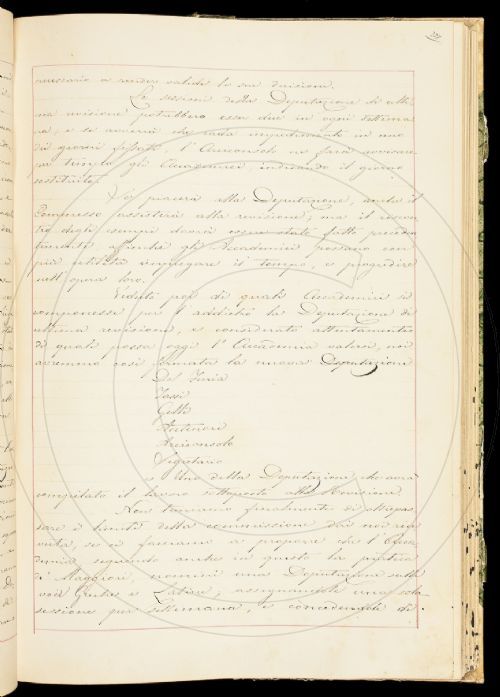 necessario a render valide le sue decisioni.
Le sessioni della Deputazione di ulti-
ma revisione potrebbero esser due in ogni settima-
na, e se avverrà che cada impedimento in uno
dei giorni fissati, l'Arciconsolo ne farà avvisare
per tempo gli Accademici, indicando il giorno
sostituito.
Se piacerà alla Deputazione, anche il
Compresso assisterà alla revisione; ma il riscon-
tro degli esempi dovrà essere stato fatto preceden-
temente affinchè gli Accademici possano con
più utilità impiegare il tempo, e progredire
nell'opera loro.
Veduto poi di quali Accademici si
componesse per l'addietro la Deputazione di
ultima revisione, e considerato attentamente
di quali possa oggi l'Accademia valersi, noi
avremmo così formata la nuova Deputazione
Del Furia
Tassi
Gelli
Arciconsolo
Segretario
e Uno della Deputazione che avrà
compilato il lavoro sottoposto alla Revisione.
Non temiamo finalmente di oltrepas-
sare i limiti della commissione da noi rice-
vuta, se ci facciamo a proporre che l'Acca-
demia seguendo anche in questo la pratica
de' Maggiori, nomini una Deputazione sulle
voci Greche e Latine, assegnandole una sola
sessione per settimana, e concedendole di